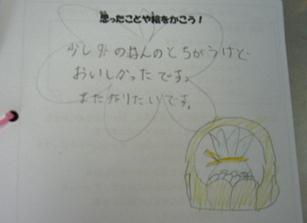 思ったことや絵をかこう！
少し外のなんのとちがうけど
おいしかったです。
また作りたいです。